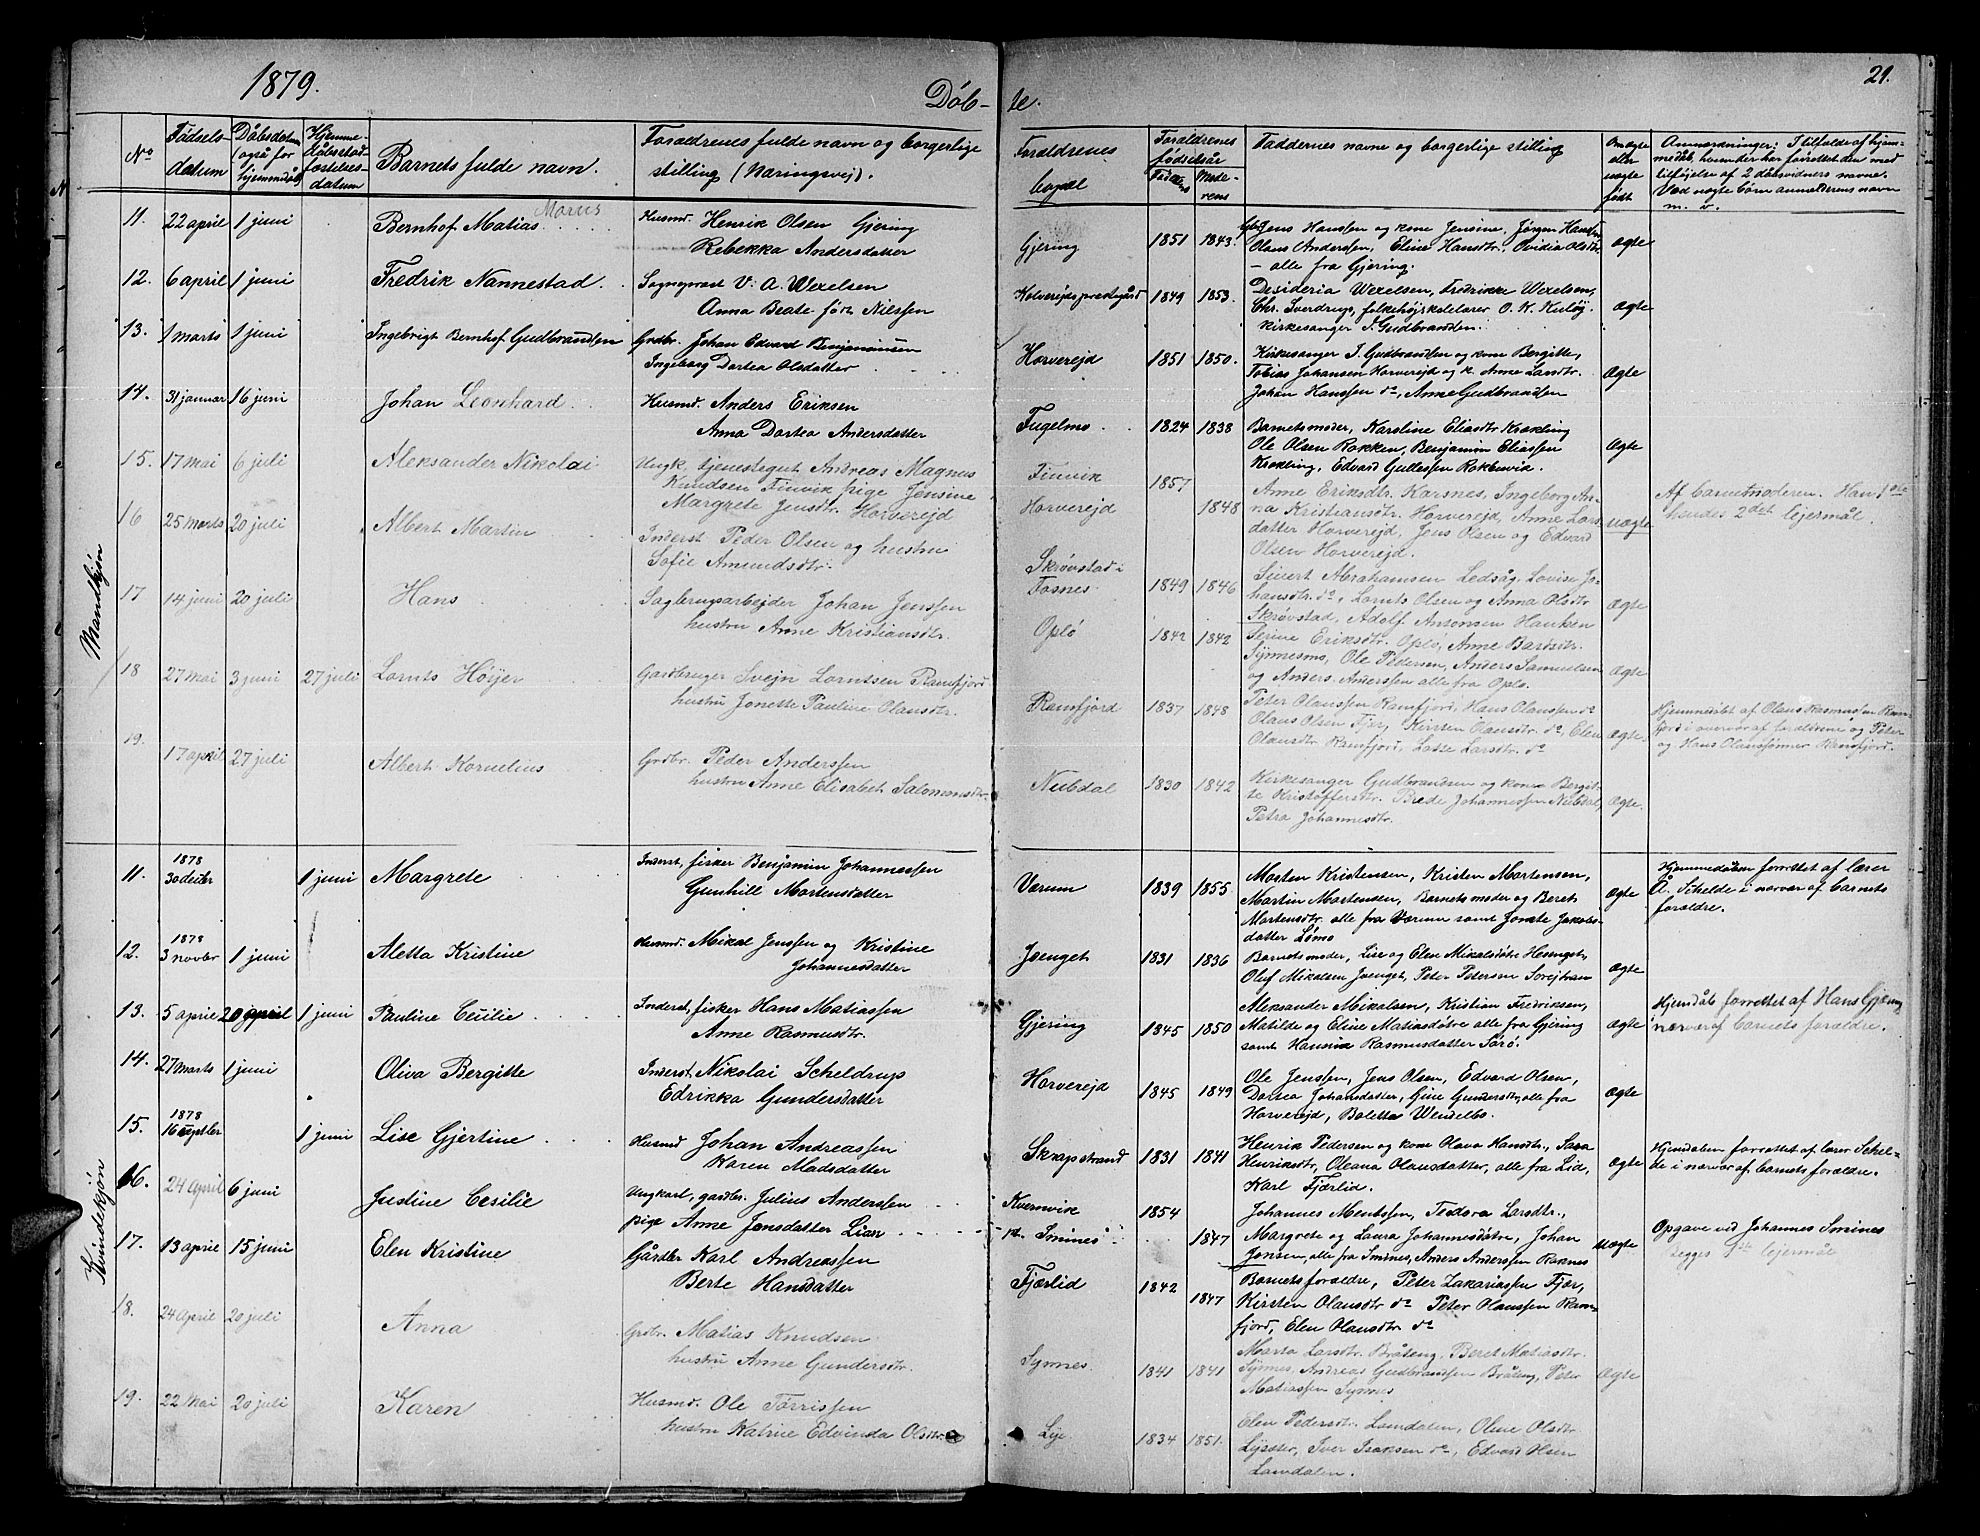 1879.
Døb-
te.
21.
No
Fødsels-
datum
Dåbsdatum
(også for
hjemmedåb)
Hjemme-
dåbsstad-
fæstelses-
datum
Barnets fulde navn.
Forældrenes fulde navn og borgerlige
stilling (Næringsvej).
Forældrenes
bopæl
Forældrenes
fødselsår
Faderens
Mode-
rens
Faddernes navne og borgerlige stilling
Ægte
eller
uægte
født
Anmærkninger: I tilfælde af hjem-
medåb, hvem der har forrettet den med
tilføjelse af 2 dåbsvidners navne.
Ved uægte børn anmelderens navn
m. v.
Mandkjøn
11. 22 april 1 juni Bernhof Matias Husmd. Henrik Olsen Gjering
Rebekka Andersdatter
Gjering 1851 1843. Jens Hanssen og kone Jensine, Jørgen Hanssen
Olaus Anderssen, Eline Hansdtr., Ovidia Olsdtr.
- alle fra Gjering. ægte
12. 6 april 1 juni Fredrik Nannestad Sogneprest V. A. Wexelsen
Anna Beate født Nielssen
Kolverejds prestegård 1849 1853. Desideria Wexelsen, Fredrikke Wexelsen,
Chr. Sverdrup, folkehøjskolelærer O. K. Kuløy
kirkesanger I. Gudbrandsen. Ægte
13. 1 marts 1 juni Ingebrigt Bernhof Gudbrandsen Grdbr. Johan Edvard Benjaminsen
Ingeborg Dortea Olsdatter
Horverejd 1851 1850. Kirkesanger I. Gudbrandsen og kone Bergitte,
Tobias Johansen Horverejd og k. Anne Larsdtr.
Johan Hanssen do, Anne Gudbrandsen Ægte
14. 31 januar 16 juni Johan Leonhard Husmd. Anders Eriksen
Anna Dortea Andersdatter
Fugelmo 1824 1838 Barnets moder, Karoline Eliasdtr Krækling
Ole Olsen Rokken, Benjamin Eliassen
Krækling, Edvard Gullessen Rokkevik. Ægte
15. 17 Mai 6 juli Aleksander Nikolai Ungk. tjenestegut Andreas Magnus
Knudsen Finvik pige Jensine
Margrete Jensdtr. Horverejd
Finvik 1857
Horverejd 1848 Anne Eriksdtr. Karsnes, Ingeborg An-
na Kristiansdtr. Horverejd, Anne Lars-
datter Horverejd, Jens Olsen og Edvard
Olsen Horverejd. uægte
Af barnetmoderen. Hans 1ste
hendes 2det lejermål.
16 25 marts 20 juli Albert Martin Inderst Peder Olsen og hustru
Sofie Amundsdtr.
Skrøvstad i
Fosnes 1849 1846 Sivert Abrahamsen Ledsåg, Lovise Jo-
hansdtr. do, Lornts Olsen og Anna Olsdtr
Skrøvstad, Adolf Antonsen Hanken Ægte
17 14 juni 20 juli Hans Sagbrugsarbejder Johan Jenssen
hustru Anne Kristiansdtr.
Oplø 1842 1842 Serine Eriksdtr. Oplø, Anne Bårdsdtr.
Synnesmo, Ole Pedersen, Anders Samuelsen
og Anders Anderssen alle fra Oplø. Ægte
18 27 mai 3 juni 27 juli Lornts Høyer Gardbruger Svejn Lorntsen Ramfjord
hustru Jonette Pauline Olausdtr.
Ramfjord 1837 1848 Peter Olaussen Ramfjord, Hans Olaussen do
Olaus Olsen Fjær, Kirsten Olausdtr. do, Elen
Olausdtr Ramfjord, Lotte Larsdtr. do Ægte
Hjemmedøbt af Olaus Rasmussen Ram-
fjord i overvær af forældrene og Peter
og Hans Olaussønner Ramfjord.
19. 17 april 27 juli Albert Kornelius Grdbr. Peder Anderssen
hustru Anne Elisabet Salomonsdtr.
Nubdal 1830 1842 Kirkesanger Gudbrandsen og kone Bergit-
te Kristoffersdtr. Brede Johannessen Nubdal,
Petra Johannesdtr. Ægte.
Kvindekjøn
11. 1878 30 decbr 1 juni Margrete Inderst, fisker Benjamin Johannessen
Gunhill Mortensdatter
Værum 1839 1855 Morten Kristensen, Kristen Mortensen,
Martin Mortensen, Barnets moder og Beret
Mortensdtr. alle fra Værum samt Jonete Jakobs-
datter Lømo ægte
Hjemmedåben forrettet af lærer
Å. Schelde i nærvær af barnets
forældre.
12. 1878 3 novbr 1 juni Aletta Kristine Husmd. Mikal Jenssen og Kristine
Johannesdatter
Joenget 1831 1836 Barnets moder, Lise og Elen Mikalsdøtre Hesenget,
Oluf Mikalsen Joenget, Peter Petersen Sørejtran ægte
13. 5 april 20 april 1 juni Pauline Cecilie Inderst, fisker Hans Matiassen
Anne Rasmusdtr.
Gjering 1845 1850 Aleksander Mikalsen, Kristian Fredriksen,
Matilde og Eline Matiasdøtre alle fra Gjering
samt Hansine Rasmusdatter Sørø. Ægte
Hjemdåb forrettet af Hans Gjæring
i nærvær af barnets forældre.
14. 27 marts 1 juni Oliva Bergitte Inderst Nikolai Scheldrup
Edrikka Gundersdatter
Horverejd 1845 1849 Ole Jenssen, Jens Olsen, Edvard Olsen,
Dortea Johansdatter, Gine Gundersdtr, alle fra
Horverejd, Boletta Wendelbo. Ægte
15. 1878 16 septbr 1 juni Lise Gjertine Husmd Johan Andreassen
Karen Madsdatter
Skrapstrand 1831 1841 Henrik Pedersen og kone Olava Hansdtr., Sara
Henriksdtr, Oleana Olausdatter, alle fra Lid,
Karl Fjærlid. Ægte
Hjemdåben forrettet af lærer Schel-
de i nærvær af barnets forældre.
16. 24 april 6 juni Justine Cecilie Ungkarl, gårdbr. Julius Anderssen
pige Anne Jonsdatter Lian
Kvernvik 1854
pt. Smines 1847 Johannes Mentssen, Teodora Larsdtr.,
Margrete og Laura Johannesdøtre, Johan
Jonsen, alle fra Smines, Anders Anderssen Raknes uægte
Opgave ved Johannes Smines
begges 1ste lejermål
17. 13 april 15 juni Elen Kristine Gårdbr Karl Andreassen
Berte Hansdatter
Fjærlid 1842 1847 Barnets forældre, Peter Zakariassen Fjær,
Kirsten Olausdtr do Peter Olaussen Ram-
fjord, Elen Olausdtr do
18. 24 april 20 juli Anna Grdbr. Matias Knudsen
hustru Anne Gundersdtr.
Synnes 1841 1841 Marta Larsdtr. Bråteng, Beret Matiasdtr.
Synnes, Andreas Gudbrandsen Bråteng, Peter
Matiassen Synnes Ægte
19. 22 Mai 20 juli Karen Husmd. Ole Tørrissen
hustru Katrine Edvinda Olsdtr.
Lye 1834 1851. Elen Pedersdtr. Lamdalen, Oline Olsdtr.
Lysøter, Iver Isaksen do, Edvard Olsen
Lamdalen.